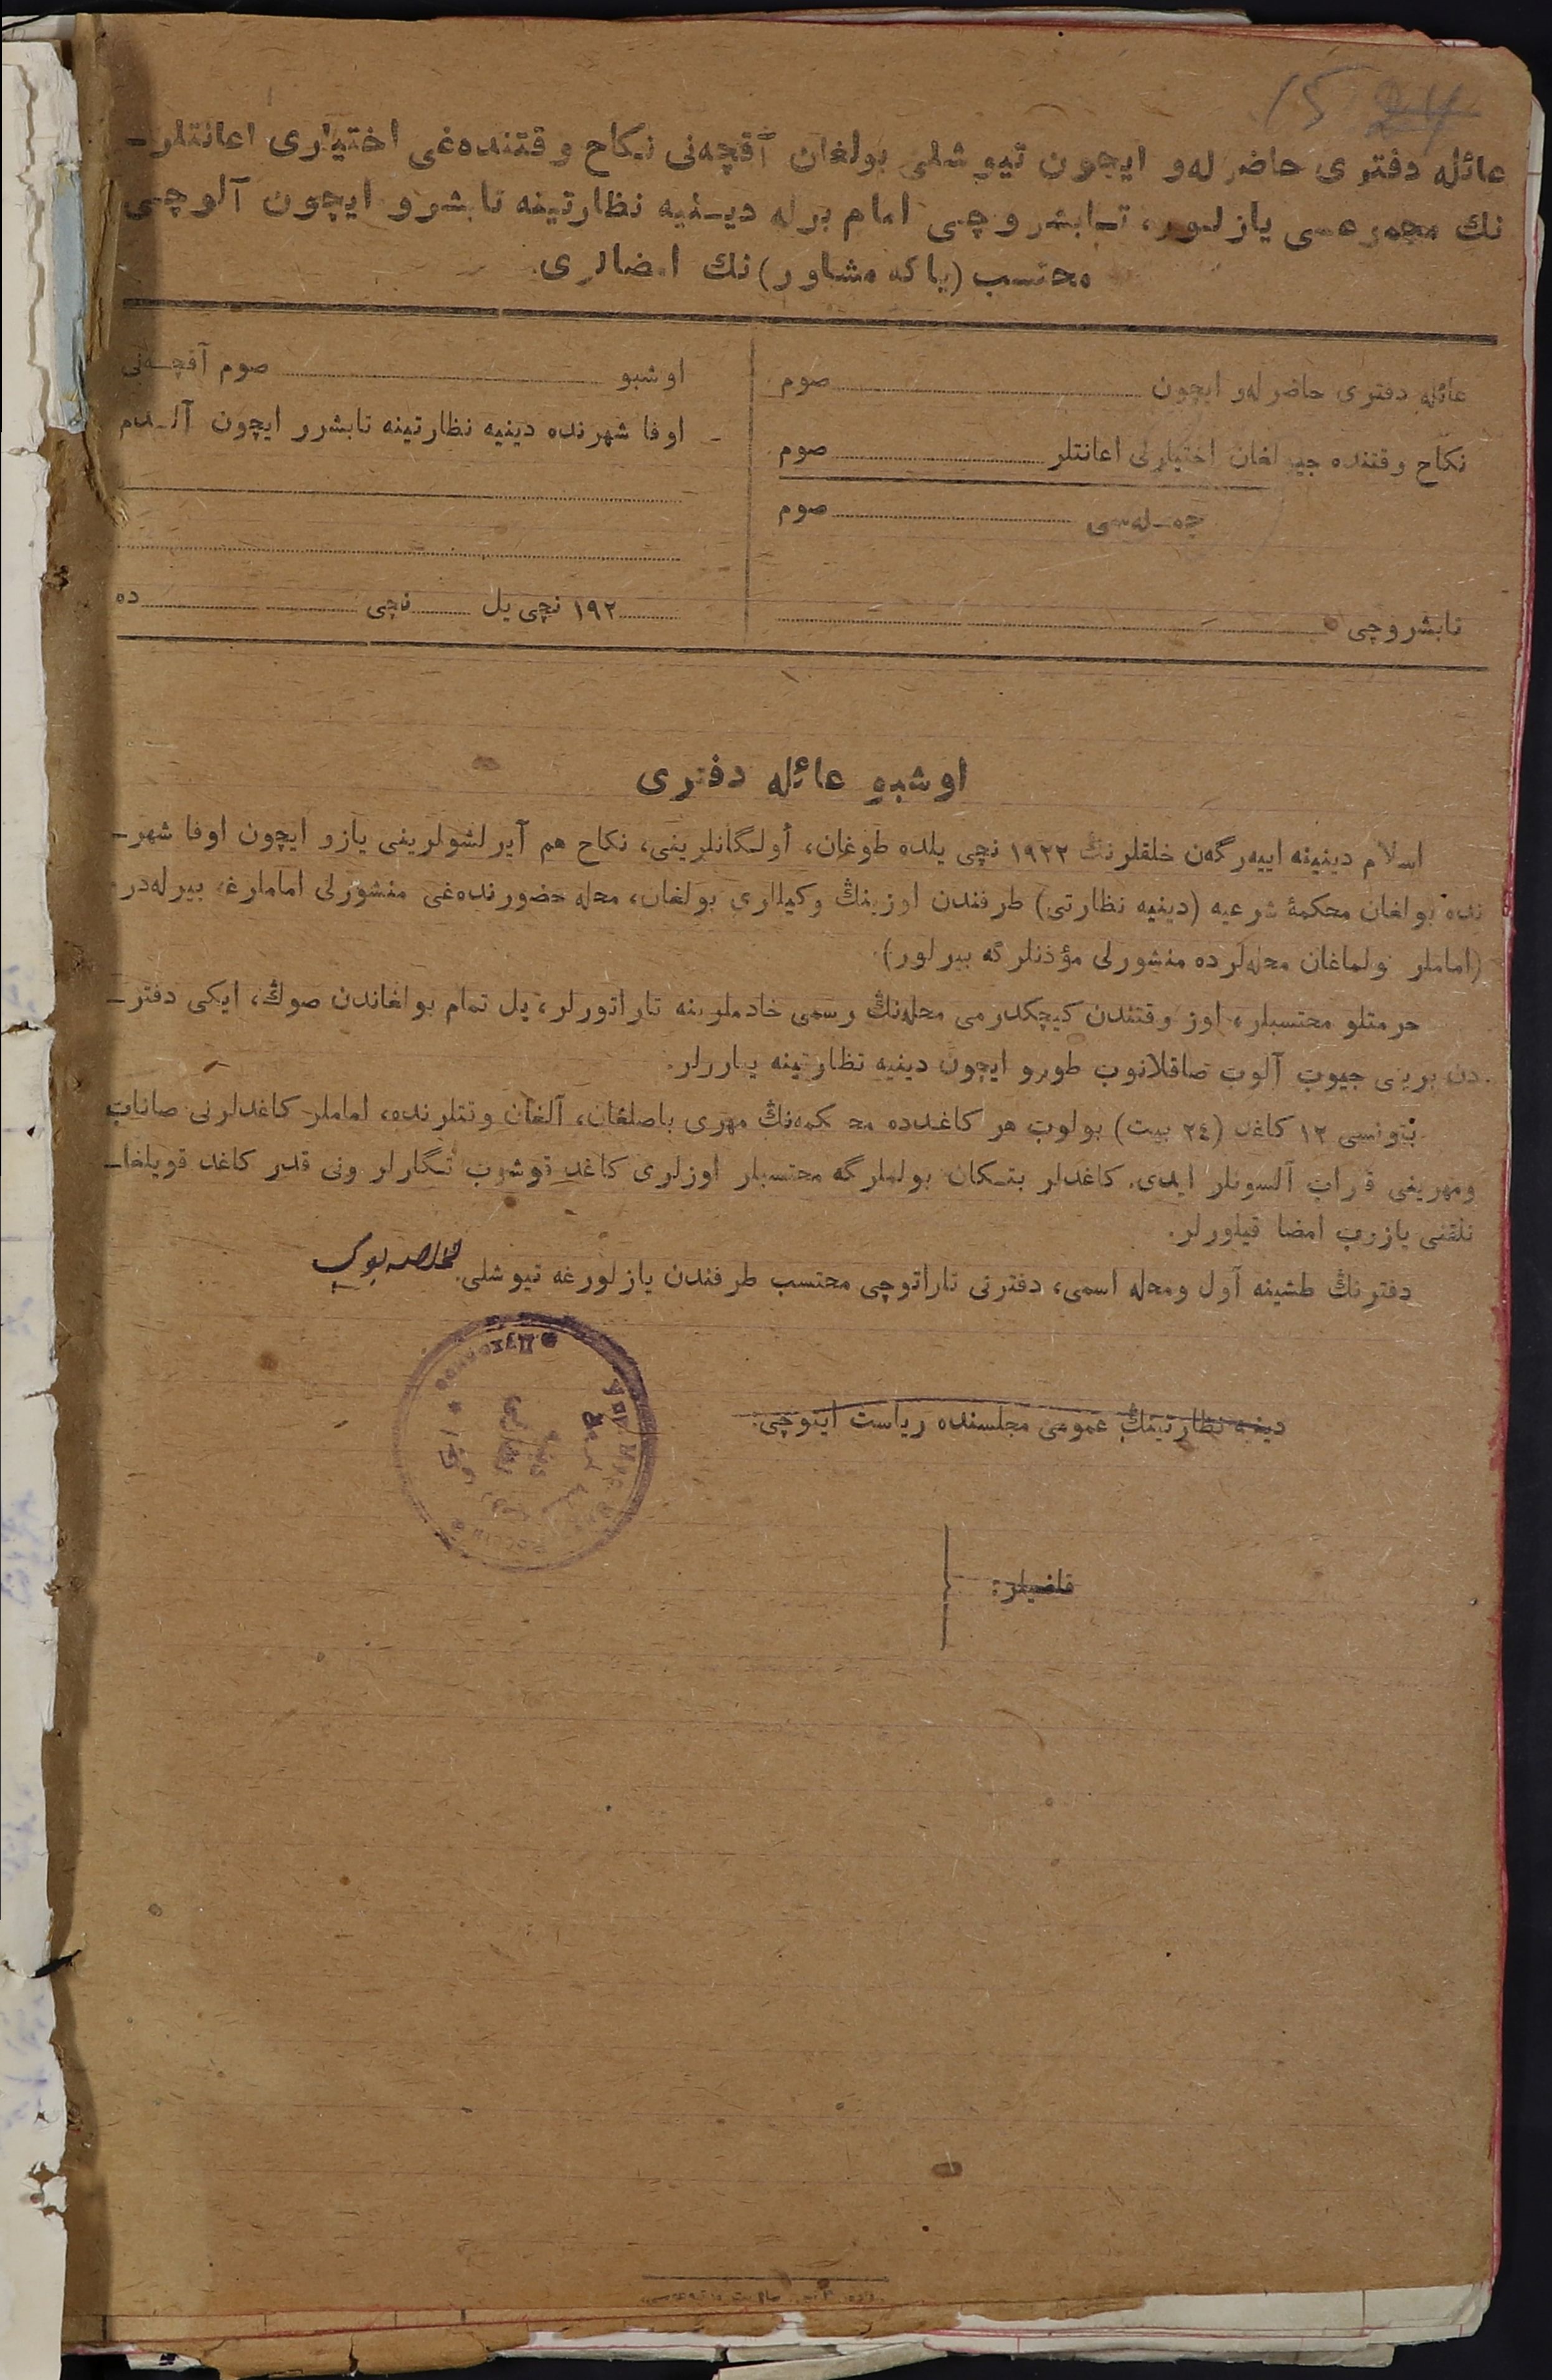 15 24
عائله دفتری حاضرلەو ایچون تیوشلی بولغان آقچەنی نکاح وقتندەغی اختیاری اعانتلر-
نك مجموعسی یازلور، تابشروچی امام برله دینیه نظارتینه تابشرو ایچون آلوچی
محتسب (یاکه مشاور) نك امضالری.
عائله دفتری حاضرلەو ایچون صوم
نکاح وقتنده جیولغان اختیارلی اعانتلر صوم
جەلەسی صوم
تابشروچی
اوشبو صوم آقچەنی
اوفا شهرنده دینیه نظارتینه تابشرو ایچون آلدم
۱۹۲ نچی یل نچی ده
اوشبو عائله دفتری
اسلام دینینه اییەرگەن خلقلرنڭ ۱۹۲۲ نچی یلده طوغان، أولگانلرینی، نکاح هم آیرلشولرینی یازو ایچون اوفا شهر-
نده بولغان محکمۀ شرعیه (دینیه نظارتی) طرفندن اوزینڭ وکیللری بولغان، محله حضورندەغی منشورلی اماملرغه بیرلەدر
(اماملر بولماغان محلەلرده منشورلی مؤذنلرگه بیرلور).
حرمتلو محتسبلر، اوز وقتندن کیچکدرمی محلەنڭ رسمی خادملرینه تاراتورلر، یل تمام بولغاندن صوڭ، ایکی دفتر-
دن برینی جیوب آلوب صاقلانوب طورو ایچون دینیه نظارتینه یباررلر.
بتونسی ۱۲ کاغد (۲٤ بیت) بولوب هر کاغدده محکمەنڭ مهری باصلغان، آلغان وقتلرنده، اماملر کاغدلرنی صاناب
ومهرینی قراب آلسونلر ایدی. کاغدلر بتکان بولملرگه محتسبلر اوزلری کاغد قوشوب تگارلر ونی قدر کاغد قویلغا-
نلقنی یازوب امضا قیلورلر.
دفترنڭ طشینه آول ومحله اسمی، دفترنی تاراتوچی محتسب طرفندن یازلورغه تیوشلی.
دینیه نظارتینڭ عمومی مجلسنده ریاست ایتوچی:
قاضیلر: